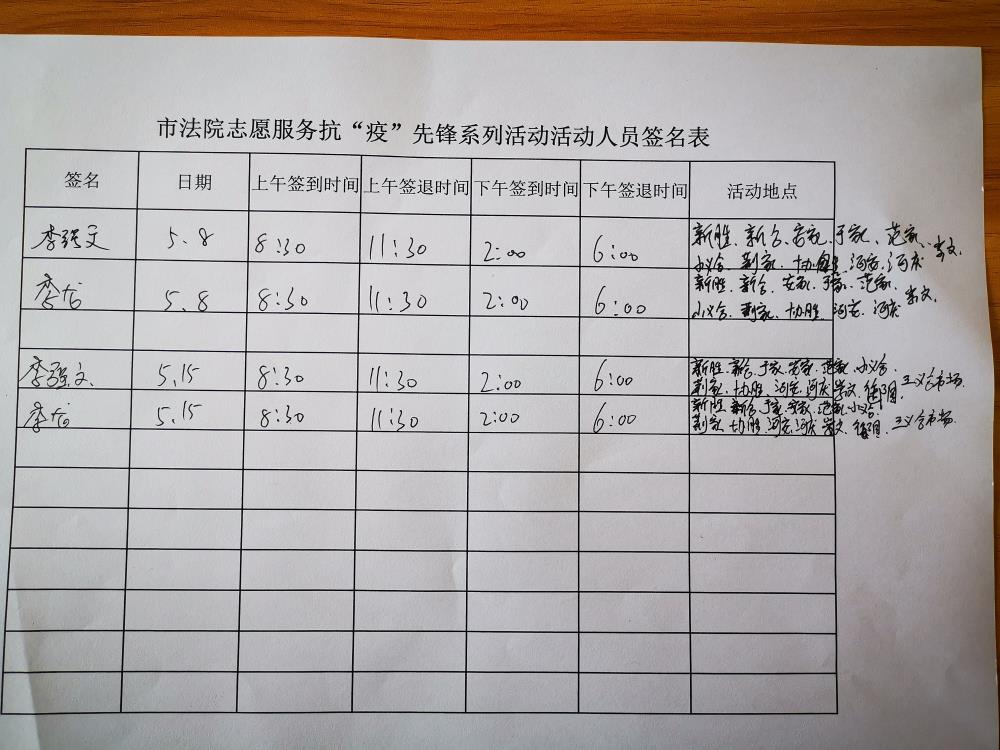 市法院志愿服务抗“疫”先锋系列活动活动人员签名表
签名 日期 上午签到时间 上午签退时间 下午签到时间 下午签退时间 活动地点
李强文 5.8 8:30 11:30 2:00 6:00 新胜、新合、安家、于家、范家、
小义合、荆家、协胜、河宏、河庆 崇文、
李龙 5.8 8:30 11:30 2:00 6:00 新胜、新合、安家、于家、范家、
小义合、荆家、协胜、河宏、河庆 崇文、
李强文 5.15 8:30 11:30 2:00 6:00 新胜、新合、于家、安家、范家、小义合、
荆家、协胜、河宏、河庆、崇文、 三义合市场、
李龙 5.15 8:30 11:30 2:00 6:00 新胜、新合、于家、安家、范家、小义合、
荆家、协胜、河宏、河庆、崇文、 三义合市场、